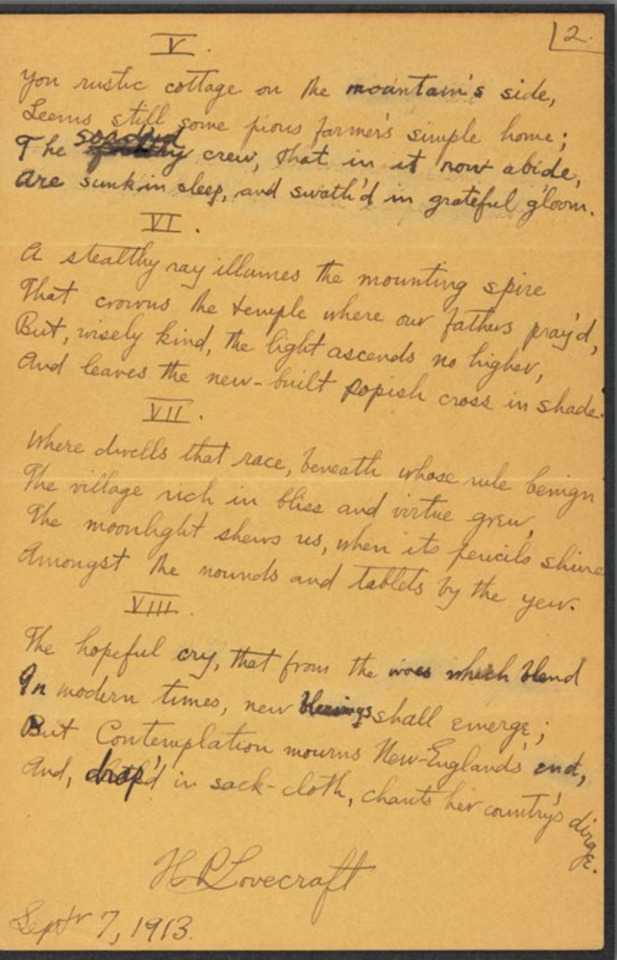 2.
V.
Yon rustic cottage on the mountain's side,
Seems still some pious farmer's simple home;
The sordid crew, that in it now abide,
Are sunk in sleep, and swath'd in grateful gloom.
VI.
A stealthy ray illumes the mounting spire
That crowns the temple where our fathers pray'd,
But, wisely kind, the light ascends no higher,
And leaves the new-built popish cross in shade.
VII.
Where dwells that race, beneath whose rule benign
The village rich in bliss and virtue grew,
The moonlight shews us, when its pencils shine
Amongst the mounds and tablets by the yew.
VIII.
The hopeful cry, that from the woes which blend
In modern times, new blessings shall emerge;
But Contemplation mourns New-England's end,
And, drap'd in sack-cloth, chants her country's dirge.
H P Lovecraft
Septr 7, 1913.